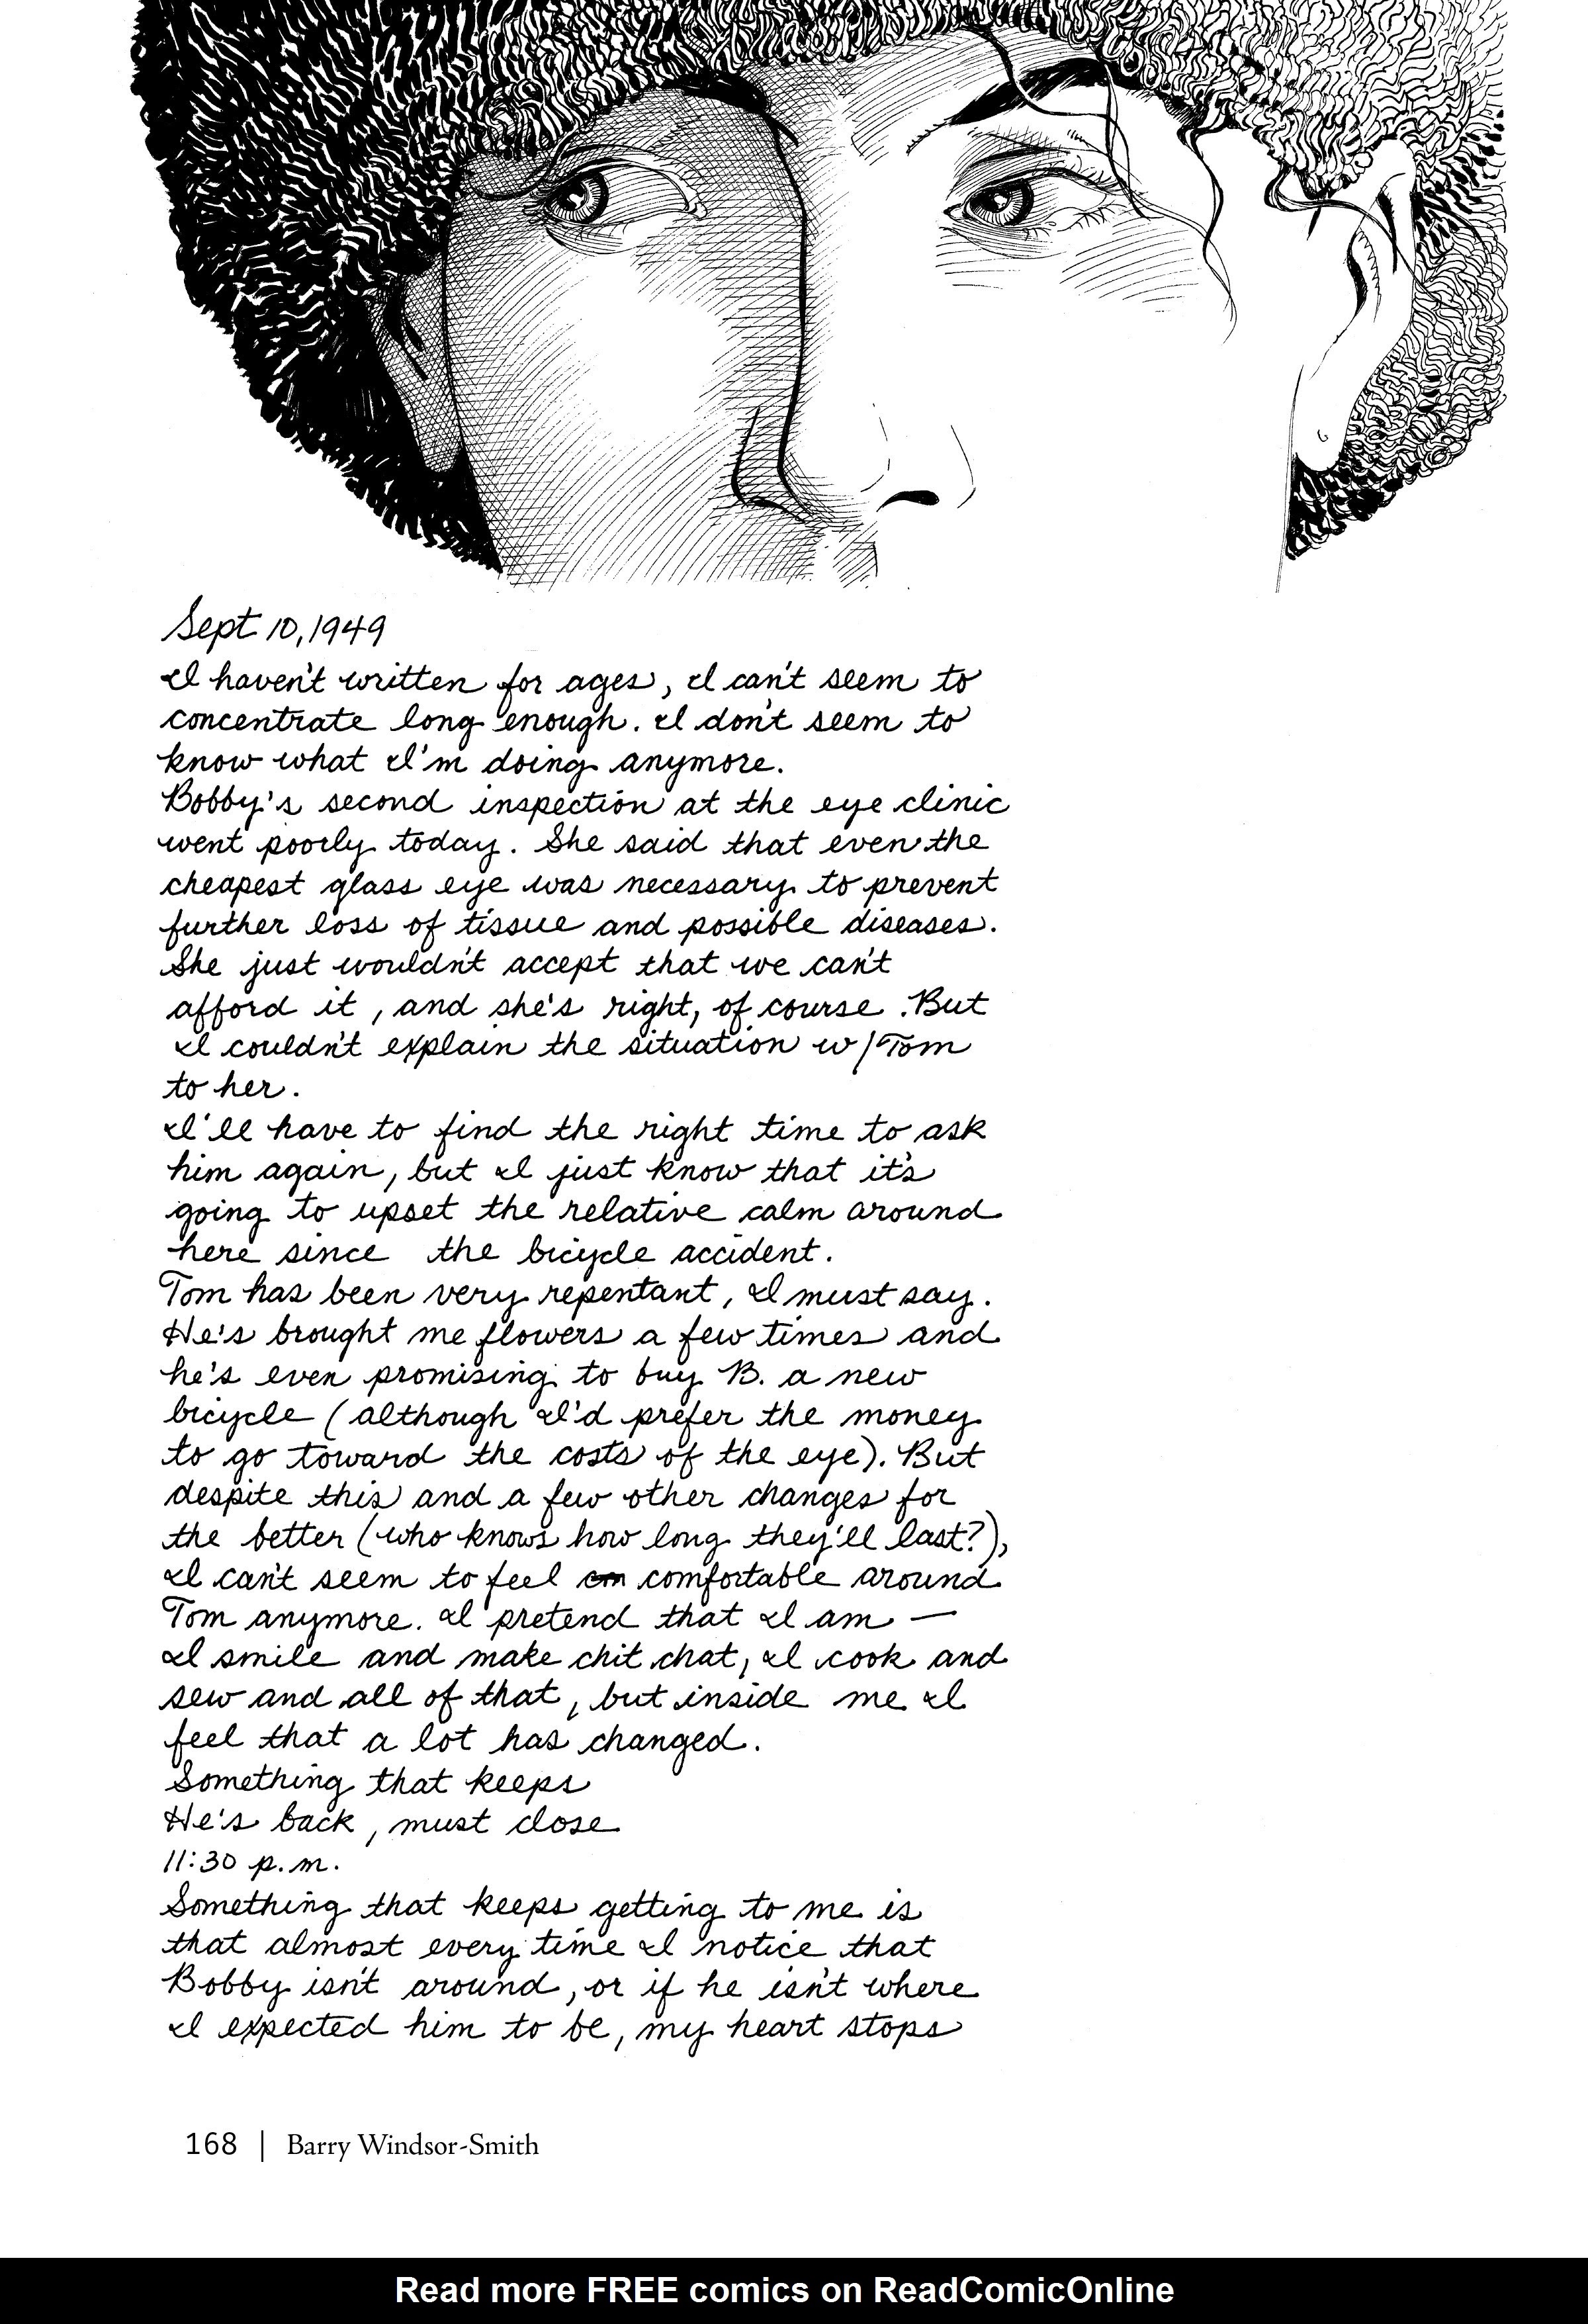 Sept 10, 1949
I haven't written for ages, I can't seem to
concentrate long enough. I don't seem to
know what I'm doing anymore.
Bobby's second inspection at the eye clinic
went poorly today. She said that even the
cheapest glass eye was necessary to prevent
further loss of tissue and possible diseases.
She just wouldn't accept that we can't
afford it, and she's right, of course. But
I couldn't explain the situation w/Tom
to her.
I'll have to find the right time to ask
him again, but I just know that it's
going to upset the relative calm around
here since the bicycle accident.
Tom has been very repentant, I must say.
He's brought me flowers a few times and
he's even promising to buy B. a new
bicycle (although I'd prefer the money
to go toward the costs of the eye). But
despite this and a few other changes for
the better (who knows how long they'll last?),
I can't seem to feel com comfortable around
Tom anymore. I pretend that I am —
I smile and make chit chat, I cook and
sew and all of that, but inside me I
feel that a lot has changed.
Something that keeps
He's back, must close
11:30 p.m.
Something that keeps getting to me is
that almost every time I notice that
Bobby isn't around, or if he isn't where
I expected him to be, my heart stops
168 | Barry Windsor-Smith
Read more FREE comics on ReadComicOnline